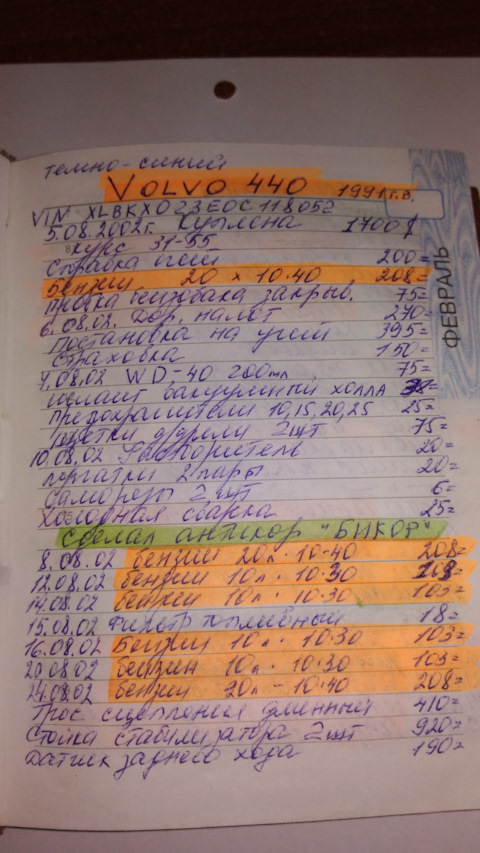 темно-синий
VOLVO 440 1991 г.в.
VIN XLBKX023EOC118052
5.08.2002г. Куплена 1700$
курс 31-55
Справка 200=
Бензин 20 x 10.40 208=
закрыв. 75=
6.08.02. Дор. налог 270=
Постановка на учет 395=
Страховка 150=
7.08.02 WD-40 200мл 75=
шланг вакуумный холла
Предохранители 10,15,20,25 25=
щетки 2шт 75=
10.08.02 20=
перчатки 2 пары 20=
саморезы 2 шт 6=
Холодная сварка 25=
Сделал антикор "БИКОР"
8.08.02 бензин 20л. 10-40 208=
12.08.02 бензин 10л. 10.30 103=
14.08.02 бензин 10л. 10.30 103=
15.08.02 Фильтр топливный 18=
16.08.02 Бензин 10л. 10.30 103=
20.08.02 бензин 10л. 10.30 103=
24.08.02 бензин 20л - 10.40 208=
Трос сцепления длинный 410=
Стойка стабилизатора 2шт 920=
Датчик заднего хода 190=
ФЕВРАЛЬ